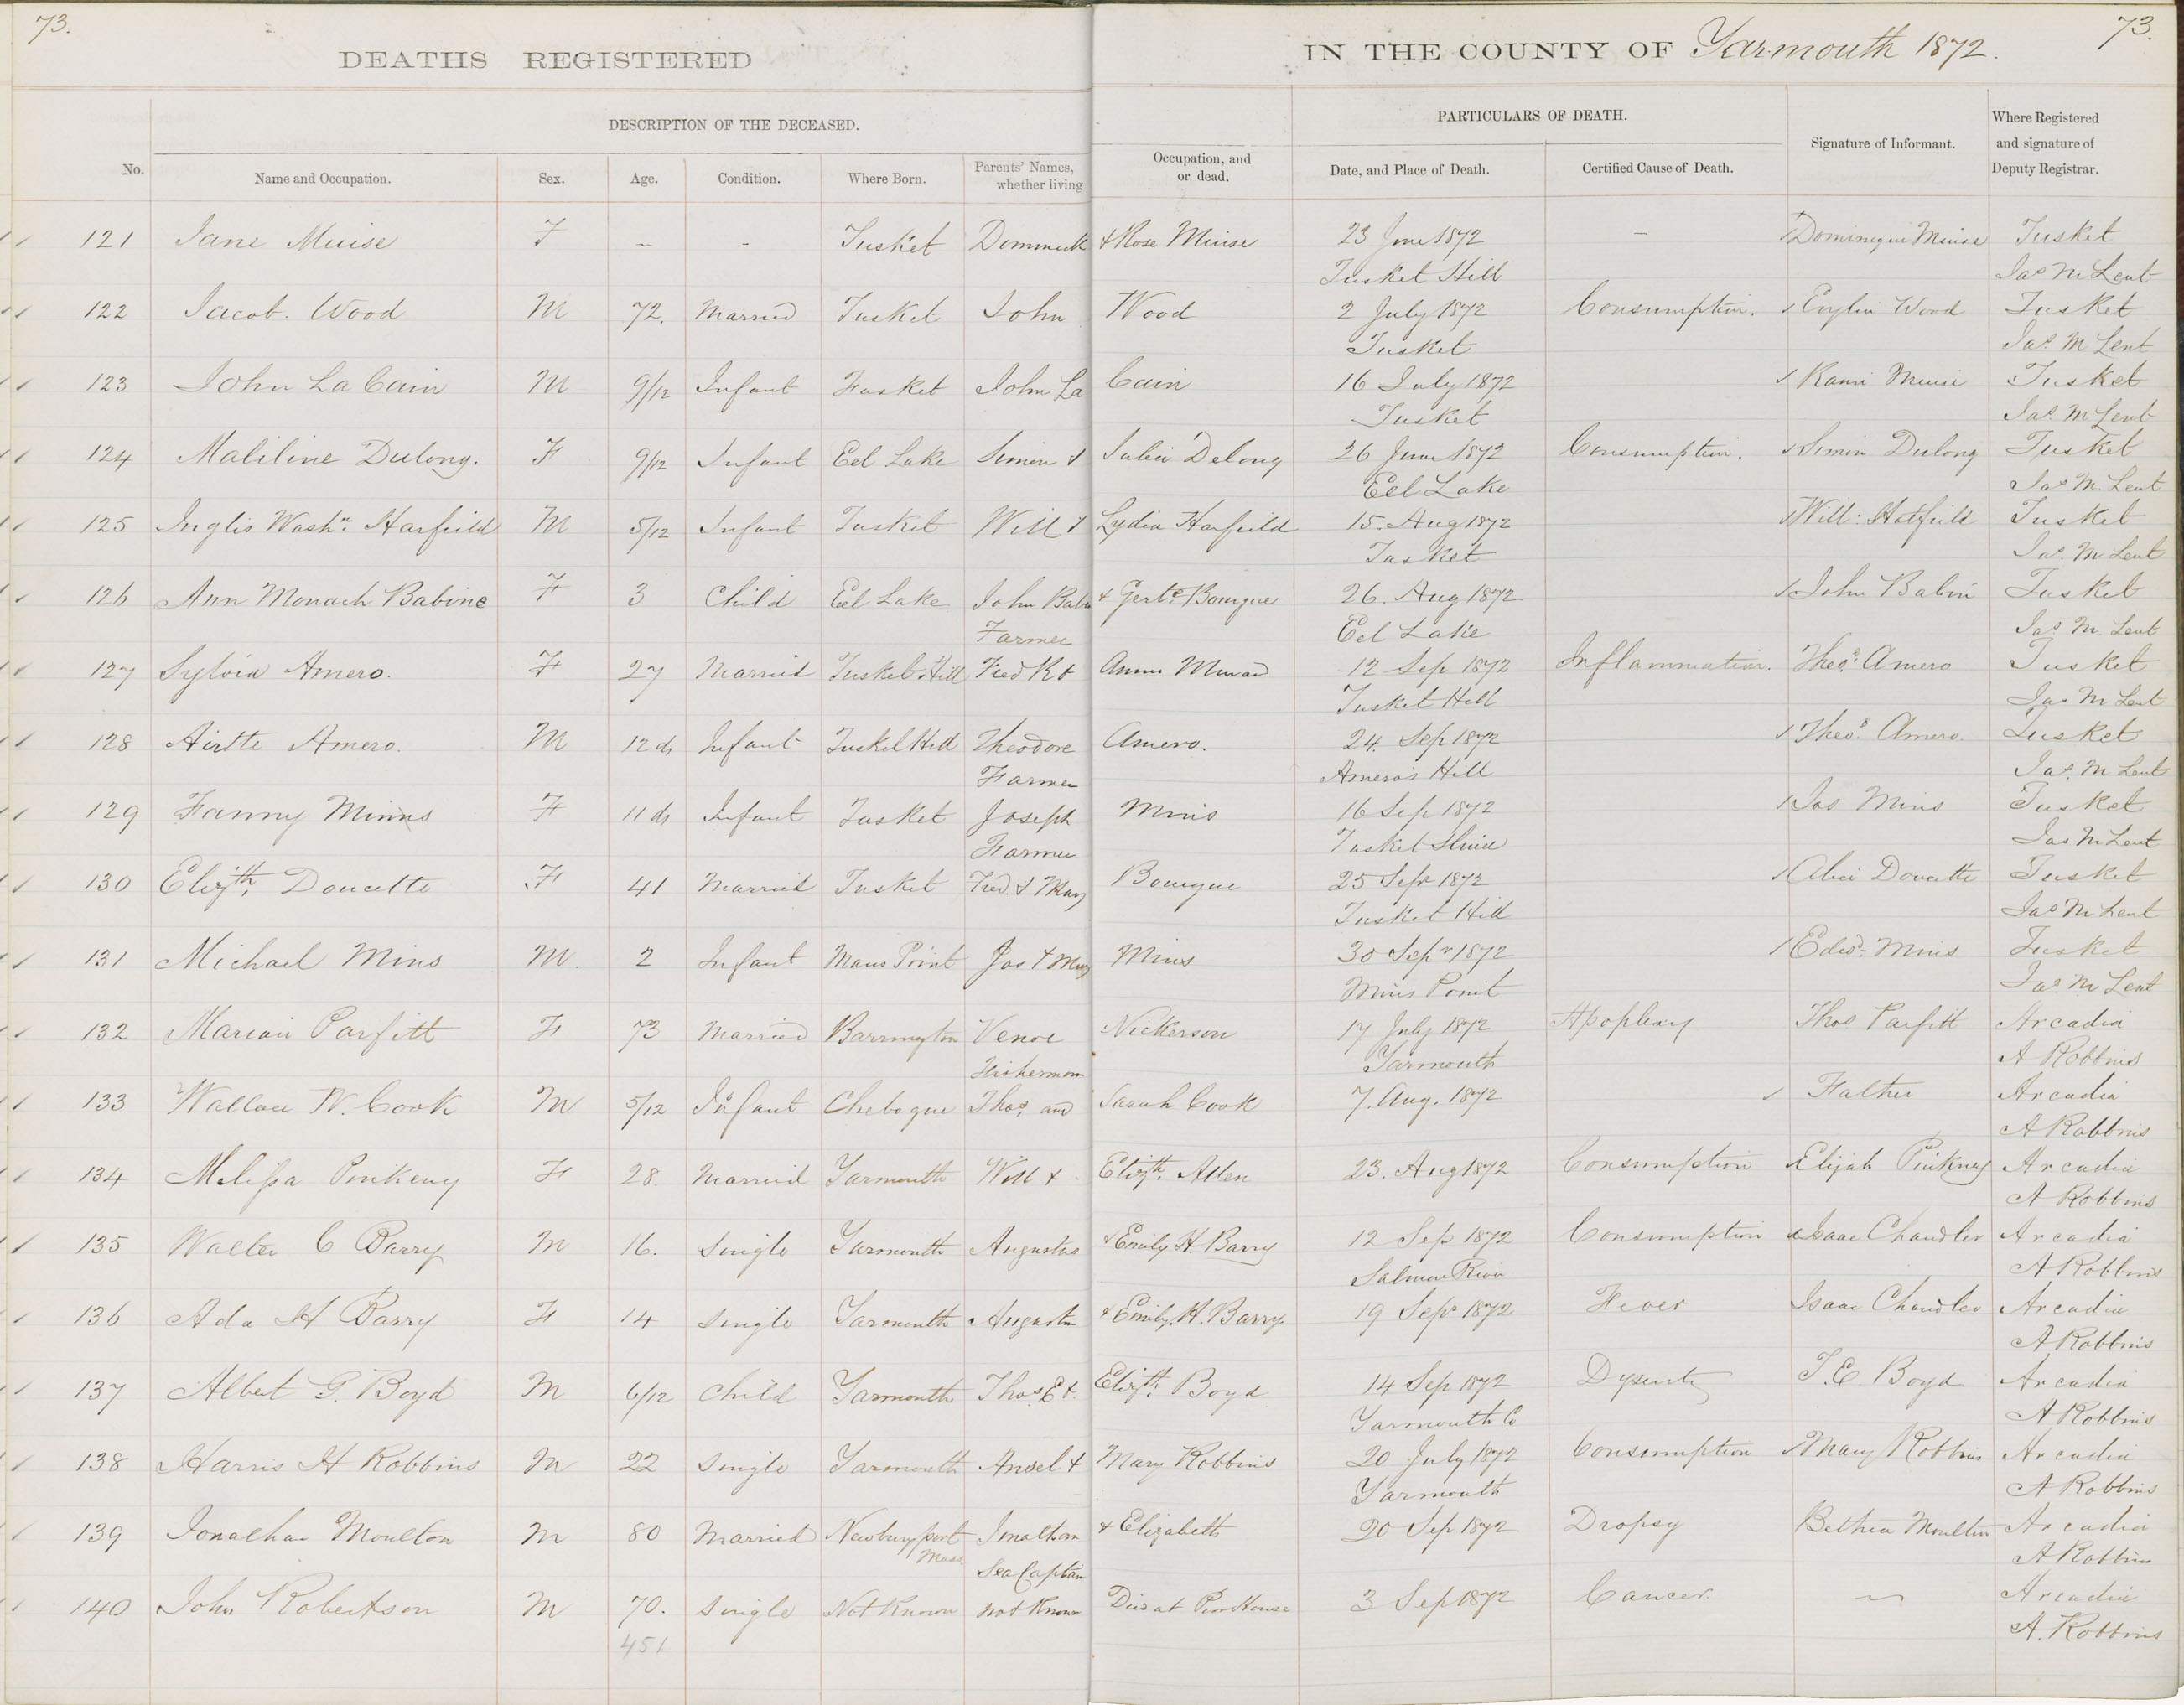 73.
73.
DEATHS REGISTERED IN THE COUNTY OF Yarmouth 1872.
DESCRIPTION OF THE DECEASED.
PARTICULARS OF DEATH.
No.
Name and Occupation.
Sex.
Age.
Condition.
Where Born.
Parents' Names, whether living
Occupation, and or dead.
Date, and Place of Death.
Certified Cause of Death.
Signature of Informant.
Where Registered and signature of Deputy Registrar.
121 Jane Muise F - - Tusket Dominick & Rose Muise 23 June 1872 - Dominique Muise Tusket
Tusket Hill Jas M Lent
122 Jacob. Wood M 72. Married Tusket John Wood 2 July 1872 Consumption. Wood Tusket
Tusket Jas. M Lent
123 John La Cain M 9/12 Infant Tusket John La Cain 16 July 1872 Muise Tusket
Tusket Jas M Lent
124 Maliline Dulong. F 9/12 Infant Eel Lake Simon & Julia Delong 26 June 1872 Consumption. Simon Dulong Tusket
Eel Lake Jas M. Lent
125 Inglis Washn. Harfield M 5/12 Infant Tusket Will & Lydia Harfield 15. Aug 1872 Will: Hatfield Tusket
Tusket Jas. M Lent
126 Ann Monach Babine F 3 Child Eel Lake John Babin & Gerte. Bourque 26. Aug 1872 John Babin Tusket
Farmer Eel Lake Jas M. Lent
127 Sylvia Amero. F 27 Married Tusket Hill Fredk & Annie 12 Sep 1872 Inflammation. Theo. Amero Tusket
Tusket Hill Jas M Lent
128 Amero. M 12 ds Infant Tusket Hill Theodore Amero. 24. Sep 1872 Theo. Amero. Tusket
Farmer Amero's Hill Jas. M Lent
129 Fanny Minns F 11 ds Infant Tusket Joseph Minis 16 Sep 1872 Jos Mins Tusket
Farmer Tusket Jas M Lent
130 Elizth. Doucette F 41 Married Tusket Fred. & Mary Bourque 25 Sepr 1872 Doucette Tusket
Tusket Hill Jas M Lent
131 Michael Mins M. 2 Infant Point Jos & Mary Mins 30 Sepr 1872 Edwd. Mins Tusket
Mins Point Jas. M Lent
132 Parfitt F 73 Married Barrington Nickerson 17 July 1872 Apoplexy Thos Parfitt Arcadia
Fisherman Yarmouth A Robbins
133 Wallace W. Cook M 5/12 Infant Chebogue Thos. and Sarah Cook 7. Aug. 1872 Father Arcadia
A Robbins
134 Melissa Pinkeny F 28. Married Yarmouth Will & Elizth. Allen 23. Aug 1872 Consumption Elijah Pinkney Arcadia
A Robbins
135 Walter C Barry M 16. Single Yarmouth Augustus & Emily H. Barry 12 Sep 1872 Consumption Isaac Chandler Arcadia
Salmon River A Robbins
136 Ada H Barry F 14 Single Yarmouth Augustus & Emily. H. Barry 19 Sepr 1872 Fever Isaac Chandler Arcadia
A Robbins
137 Albert G. Boyd M 6/12 Child Yarmouth Thos. E &. Elizth. Boyd 14 Sep 1872 T. E. Boyd Arcadia
Yarmouth Co A Robbins
138 Harris H Robbins M 22 Single Yarmouth Ansel & Mary Robbins 20 July 1872 Consumption Mary Robbins Arcadia
Yarmouth A Robbins
139 Jonathan Moulton M 80 Married Newburyport Mass Jonathan & Elizabeth 20 Sep 1872 Dropsy Bethia Moulton Arcadia
Sea Captain A Robbins
140 John Robertson M 70. Single Not Known Not Known Died at Poor House 3 Sep 1872 Cancer. - Arcadia
451 A. Robbins